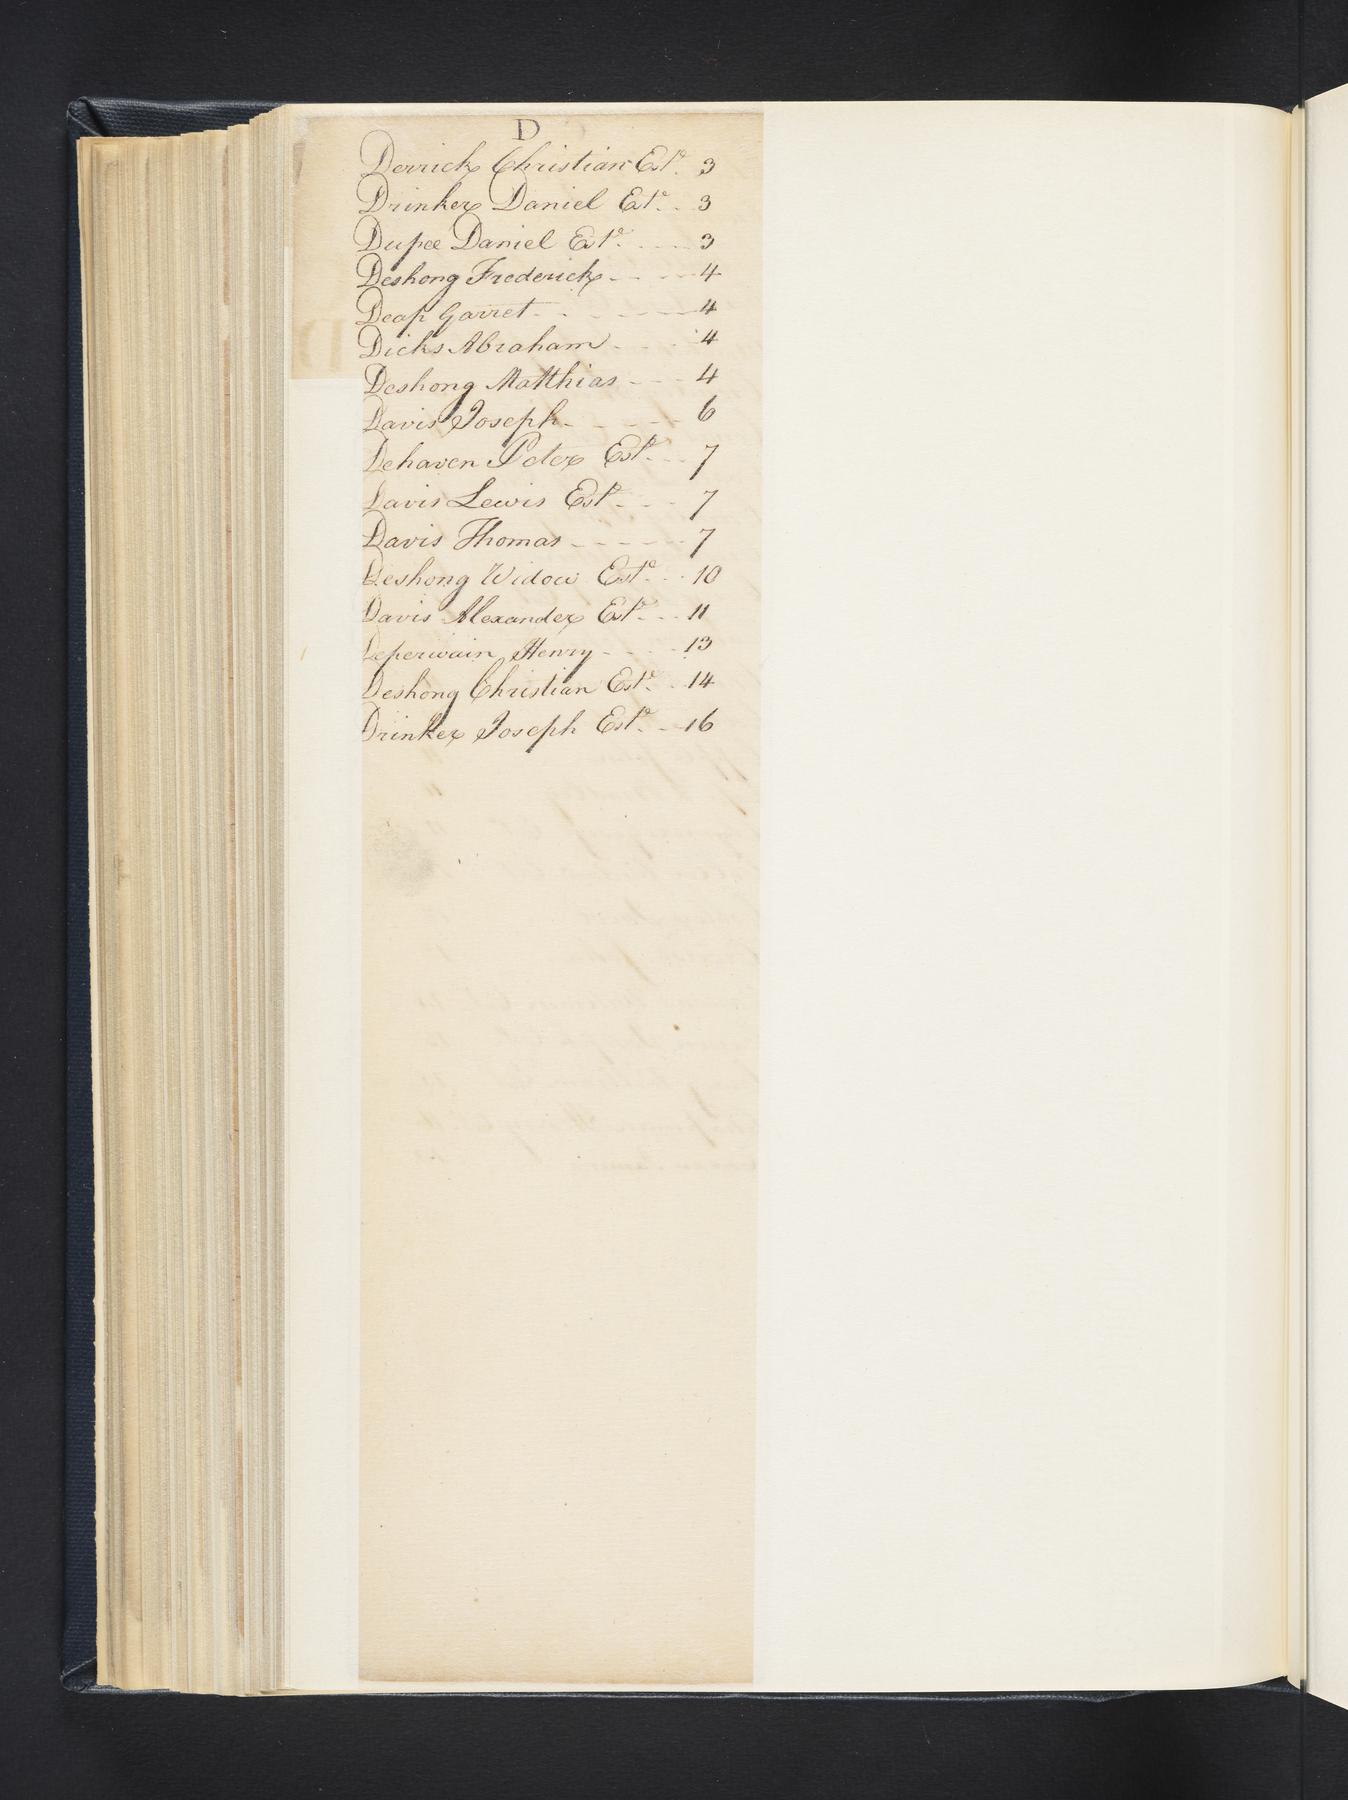 D
Derrick Christian Este. 3
Drinker Daniel Este. - - 3
Dupee Daniel Este. - - - - 3
Deshong Frederick - - - - 4
Deap Garret - - - - - - 4
Dicks Abraham - - - - 4
Deshong Matthias - - - 4
Davis Joseph - - - - - 6
Dehaven Peter Este. - - 7
Davis Lewis Este - - - 7
Davis Thomas - - - - - - 7
Deshong Widow Este. - - 10
Davis Alexander Este. - - 11
Deperwain Henry - - - - 13
Deshong Christian Este. - - 14
Drinker Joseph Este. - - 16
D